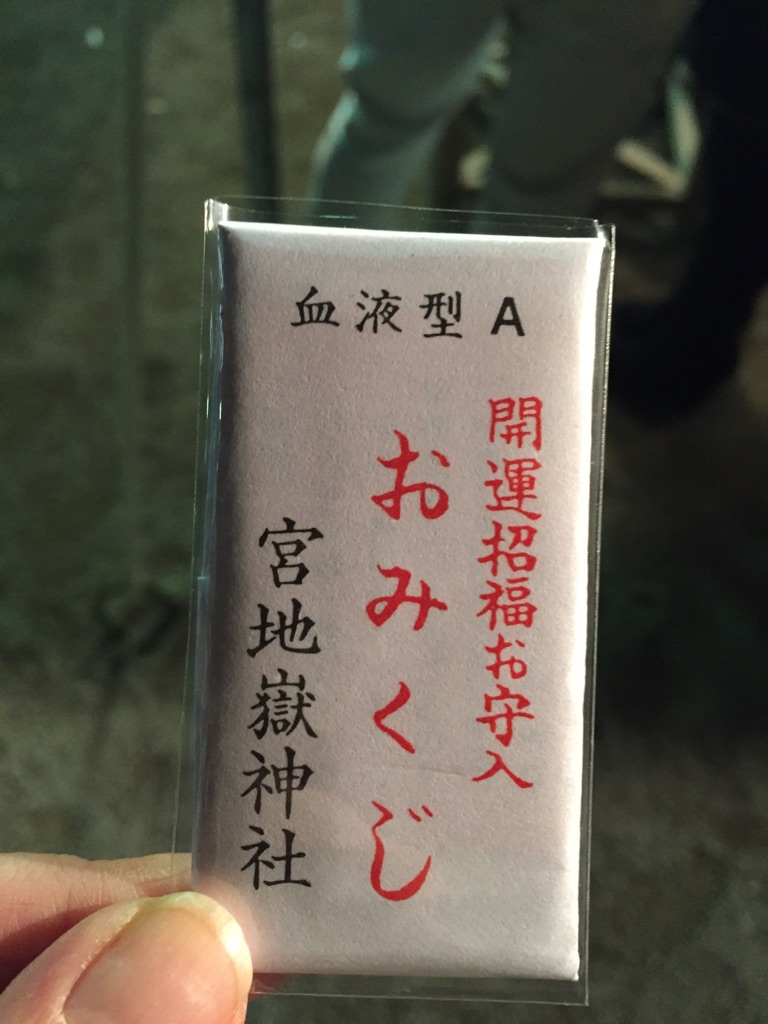 血液型 A
開運招福お守入
おみくじ
宮地嶽神社